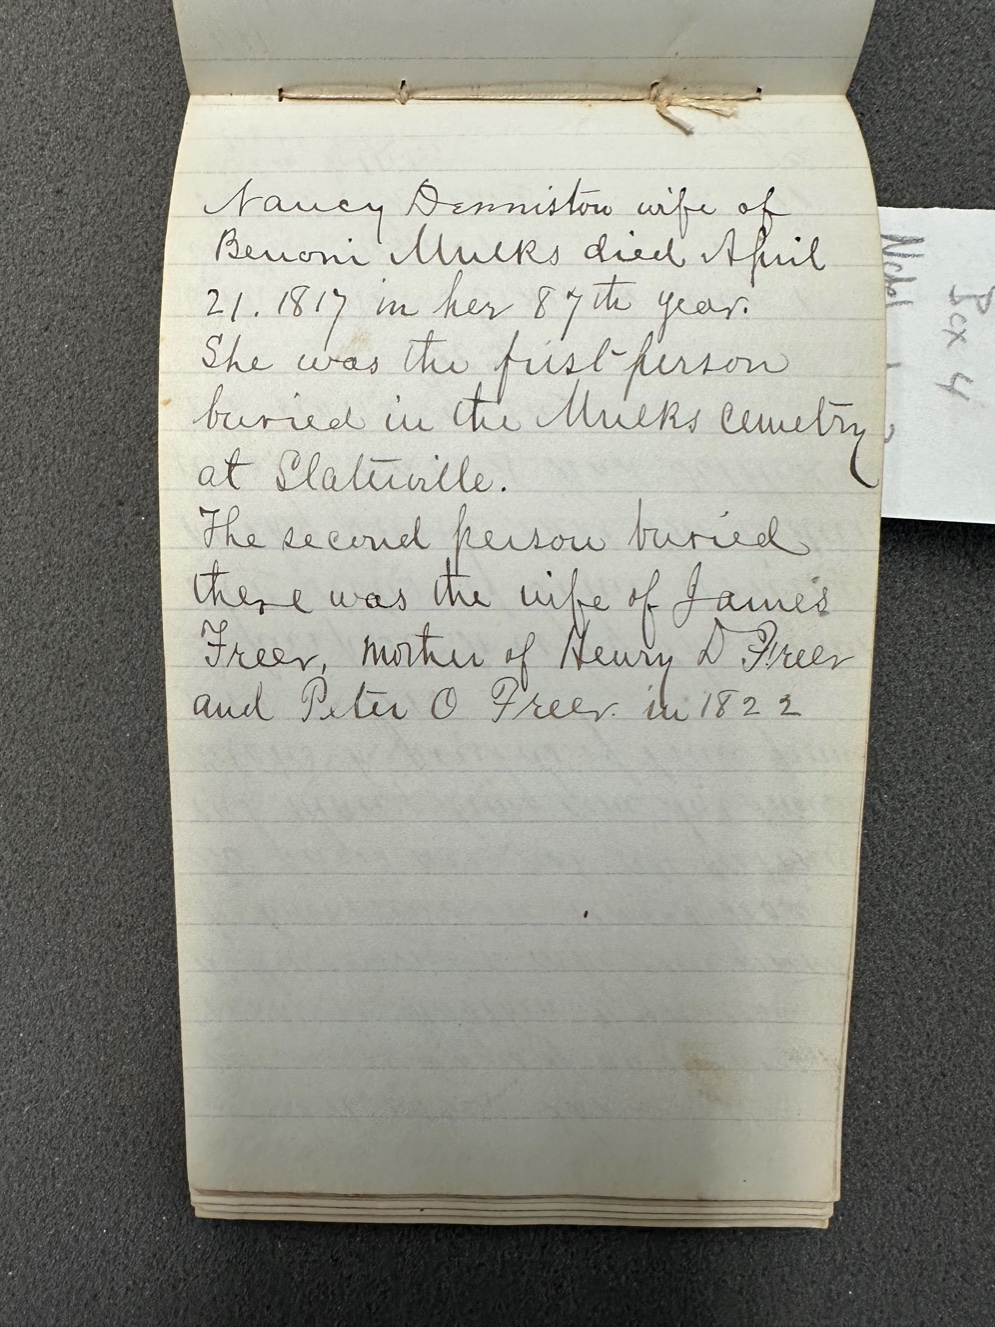 Nancy Denniston wife of
Benoni Mulks died April
21. 1817 in her 87th year.
She was the first person
buried in the Mulks cemetry
at Slaterville.
The second person buried
there was the wife of James
Freer, mother of Henry D Freer
and Peter O Freer. in 1822
Box 4